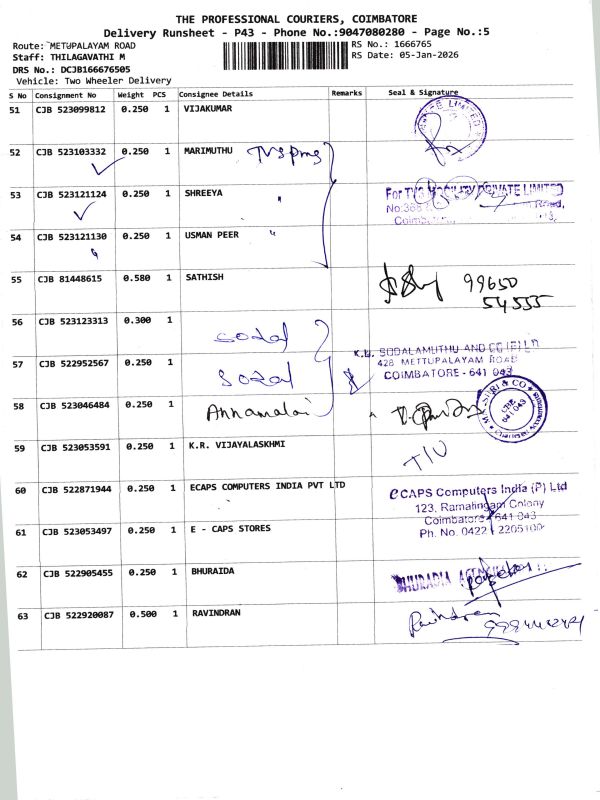 THE PROFESSIONAL COURIERS, COIMBATORE
Delivery Runsheet - P43 - Phone No.:9047080280 - Page No.:5
Route: METUPALAYAM ROAD
RS No.: 1666765
Staff: THILAGAVATHI M
RS Date: 05-Jan-2026
DRS No.: DCJB166676505
Vehicle: Two Wheeler Delivery
S No Consignment No Weight PCS Consignee Details Remarks Seal & Signature
51 CJB 523099812 0.250 1 VIJAKUMAR
52 CJB 523103332 0.250 1 MARIMUTHU
53 CJB 523121124 0.250 1 SHREEYA "
For TVS MOBILITY PRIVATE LIMITED
Road,
54 CJB 523121130 0.250 1 USMAN PEER "
55 CJB 81448615 0.580 1 SATHISH
99650
54555
56 CJB 523123313 0.300 1
K.U. SODALAMUTHU AND CO (P) Ln
428 METTUPALAYAM ROAD
57 CJB 522952567 0.250 1
COIMBATORE - 641 043
58 CJB 523046484 0.250 1 Annamalai
CBE
641 043
59 CJB 523053591 0.250 1 K.R. VIJAYALASKHMI
60 CJB 522871944 0.250 1 ECAPS COMPUTERS INDIA PVT LTD
eCAPS Computers India (P) Ltd
123, Ramalingam Colony
Coimbatore - 641 043
61 CJB 523053497 0.250 1 E - CAPS STORES
Ph. No. 0422 2205100
62 CJB 522905455 0.250 1 BHURAIDA
63 CJB 522920087 0.500 1 RAVINDRAN
Ravindran